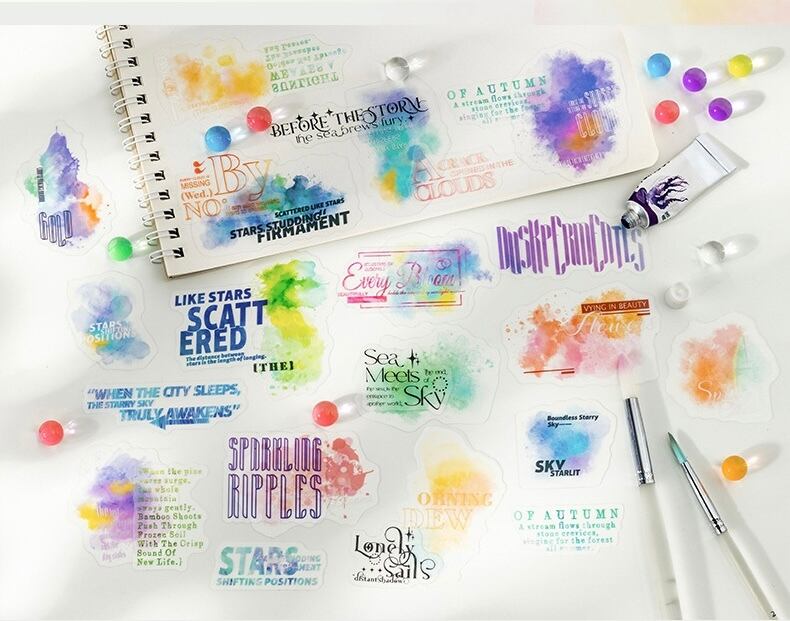 BEFORE THE STORM
the sea brews fury.
OF AUTUMN
A stream flows through
stone crevices,
singing for the forest
all summer.
MISSING
(Wed.)
By
NO
A CRACK
OPENS IN THE
CLOUDS
SCATTERED LIKE STARS
STARS STUDDING
FIRMAMENT
GOLD
DUSKPERMEATES
LIKE STARS
SCATT
ERED
The distance between
stars is the length of longing.
[THE]
Every Bloom
BEAUTIFULLY
VYING IN BEAUTY
Flower
STARS
SHIFTING
POSITIONS
Sea
Meets
Sky
The end,
the sea is the
entrance to
another world.
"WHEN THE CITY SLEEPS,
THE STARRY SKY
TRULY AWAKENS"
Boundless Starry
Sky——
SKY
STARLIT
SPARKLING
RIPPLES
When the pine
waves surge,
the whole
mountain
sways gently.
Bamboo Shoots
Push Through
Frozen Soil
With The Crisp
Sound Of
New Life.]
ORNING
DEW
OF AUTUMN
A stream flows through
stone crevices,
singing for the forest
all summer.
STARS
SHIFTING POSITIONS
Lonely
Sails
distant shadow